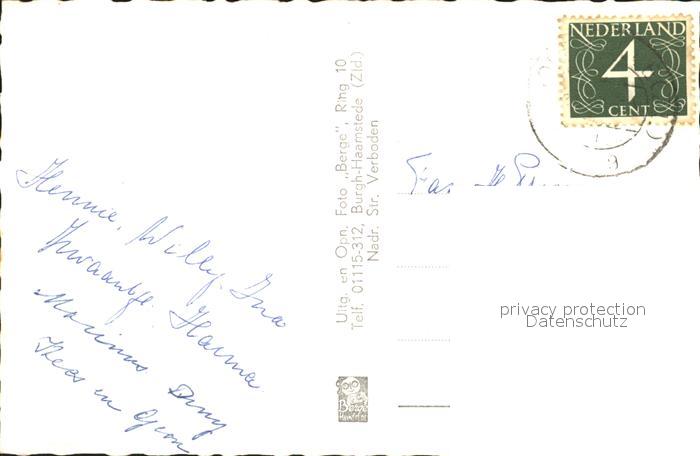 NEDERLAND
4
CENT
9
Uitg. en Opn. Foto „Berge", Ring 10
Telf. 01115-312, Burgh-Haamstede (Zld.)
Nadr. Str. Verboden
Fam.
privacy protection
Datenschutz
Hennie, Willy, Ina
Hanna
Marinus
Kees en